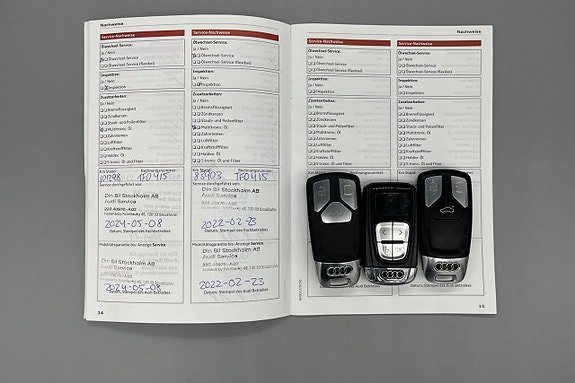 Nachweise
Service-Nachweise
Ölwechsel-Service:
Ja / Nein
Ölwechsel-Service
Ölwechsel-Service (flexibel)
Inspektion:
Ja / Nein
Inspektion
Zusatzarbeiten:
Ja / Nein
Bremsflüssigkeit
Zündkerzen
Staub- und Pollenfilter
Multitronic: Öl
Zahnriemen
Luftfilter
Kraftstofffilter
Haldex: Öl
S tronic: Öl und Filter
Km-Stand: Rechnungsnummer:
101298 1F0415
Service durchgeführt von:
Din Bil Stockholm AB
Audi Service
2024-05-08
Datum, Stempel des Fachbetriebes
Mobilitätsgarantie bis Anzeige Service
Din Bil Stockholm AB
Audi Service
2024-05-08
Datum, Stempel des Audi Betriebes
14
Service-Nachweise
Ölwechsel-Service:
Ja / Nein
Ölwechsel-Service
Ölwechsel-Service (flexibel)
Inspektion:
Ja / Nein
Inspektion
Zusatzarbeiten:
Ja / Nein
Bremsflüssigkeit
Zündkerzen
Staub- und Pollenfilter
Multitronic: Öl
Zahnriemen
Luftfilter
Kraftstofffilter
Haldex: Öl
S tronic: Öl und Filter
Km-Stand: Rechnungsnummer:
1F0415
Service durchgeführt von:
Din Bil Stockholm AB
Audi Service
2022-02-23
Datum, Stempel des Fachbetriebes
Din Bil Stockholm AB
Audi Service
2022-02-23
Datum, Stempel des Audi Betriebes
Nachweise
Service-Nachweise
Ölwechsel-Service:
Ja / Nein
Ölwechsel-Service
Ölwechsel-Service (flexibel)
Inspektion:
Ja / Nein
Inspektion
Zusatzarbeiten:
Ja / Nein
Bremsflüssigkeit
Zündkerzen
Staub- und Pollenfilter
Multitronic: Öl
Zahnriemen
Luftfilter
Kraftstofffilter
Haldex: Öl
Service-Nachweise
Ölwechsel-Service:
Ja / Nein
Ölwechsel-Service
Ölwechsel-Service (flexibel)
Inspektion:
Ja / Nein
Inspektion
Zusatzarbeiten:
Ja / Nein
Bremsflüssigkeit
Zündkerzen
Staub- und Pollenfilter
Multitronic: Öl
Zahnriemen
Luftfilter
Kraftstofffilter
Haldex: Öl
S tronic: Öl und Filter
15